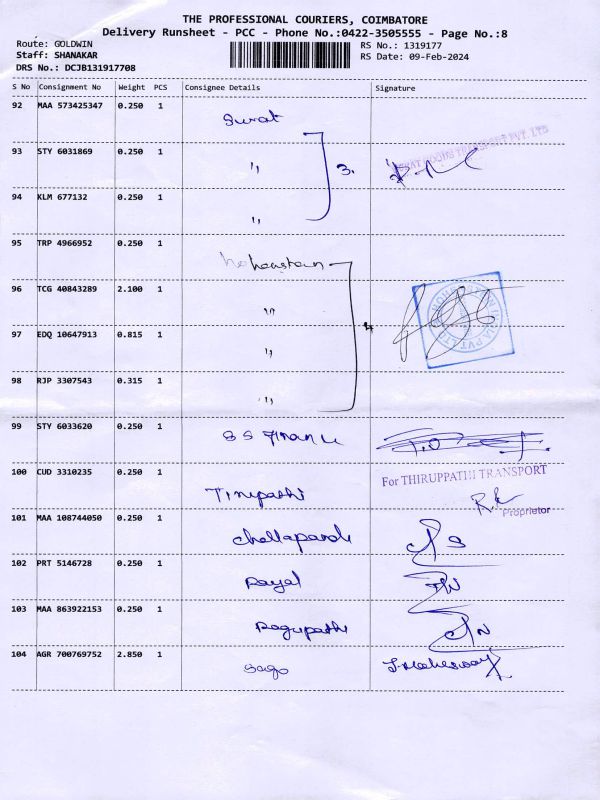 THE PROFESSIONAL COURIERS, COIMBATORE
Delivery Runsheet - PCC - Phone No.:0422-3505555 - Page No.:8
Route: GOLDWIN
RS No.: 1319177
Staff: SHANAKAR
RS Date: 09-Feb-2024
DRS No.: DCJB131917708
S No Consignment No Weight PCS Consignee Details Signature
92 MAA 573425347 0.250 1
Surat
93 STY 6031869 0.250 1
TRANSPORT PVT. LTD
" 3.
94 KLM 677132 0.250 1
"
95 TRP 4966952 0.250 1
96 TCG 40843289 2.100 1
" 4
97 EDQ 10647913 0.815 1
"
98 RJP 3307543 0.315 1
"
99 STY 6033620 0.250 1
S S
100 CUD 3310235 0.250 1
For THIRUPPATHI TRANSPORT
Tirupathi
R.K
Proprietor
101 MAA 108744050 0.250 1
102 PRT 5146728 0.250 1
Payal
103 MAA 863922153 0.250 1
Ragupathi
104 AGR 700769752 2.850 1